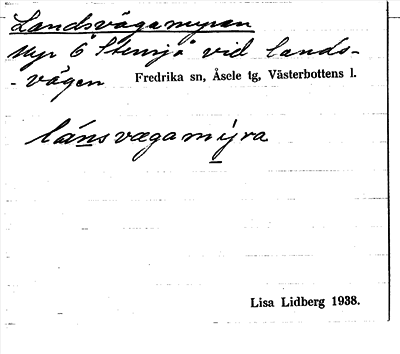 Landsvägamyran
Myr ö Stensjö vid lands-
- vägen Fredrika sn, Åsele tg, Västerbottens l.
lánsvægamýra
Lisa Lidberg 1938.